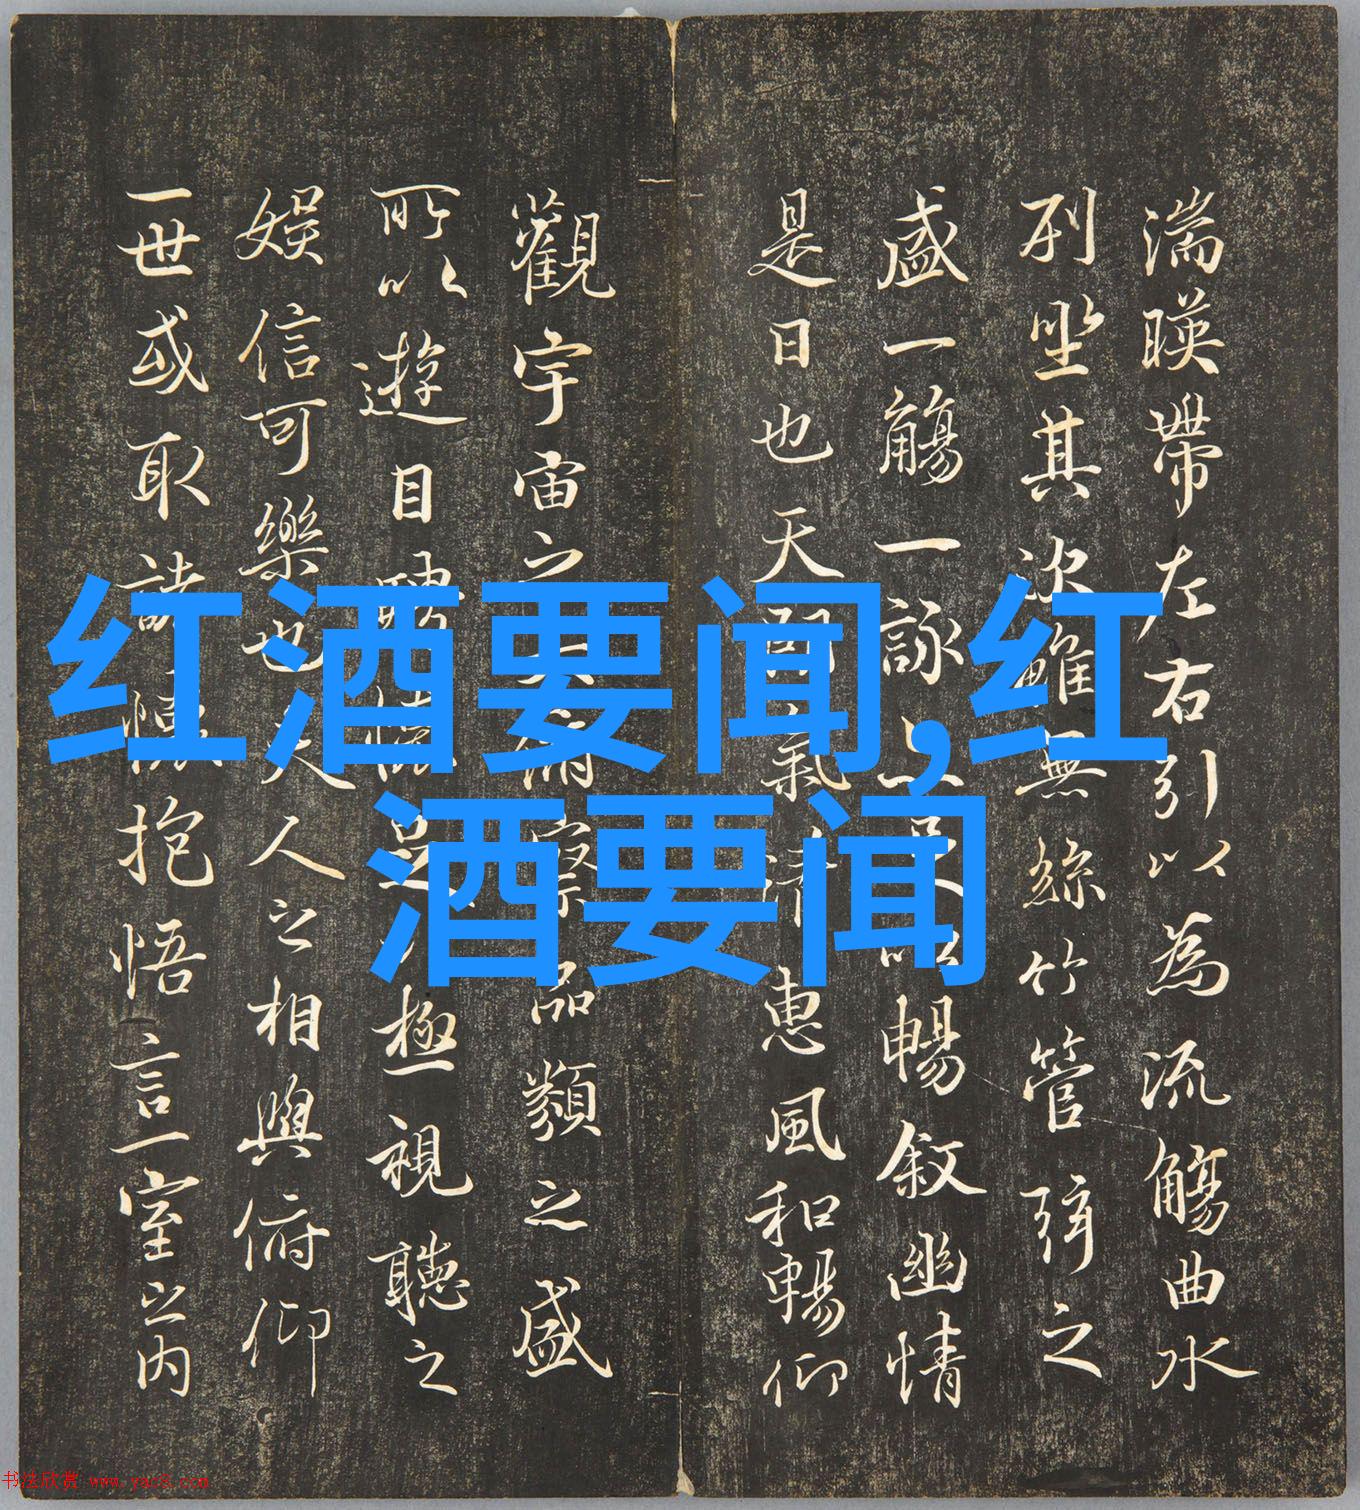 湍暎帶左右引以為流觴曲水
列坐其次雖無絲竹管弦之
盛一觴一詠亦足以暢敘幽情
是日也天朗氣清惠風和暢仰
觀宇宙之大俯察品類之盛
所以遊目騁懷足以極視聽之
娛信可樂也夫人之相與俯仰
一世或取諸懷抱悟言一室之内
红酒要闻,红
酒要闻
书法欣赏 www.yac8.com